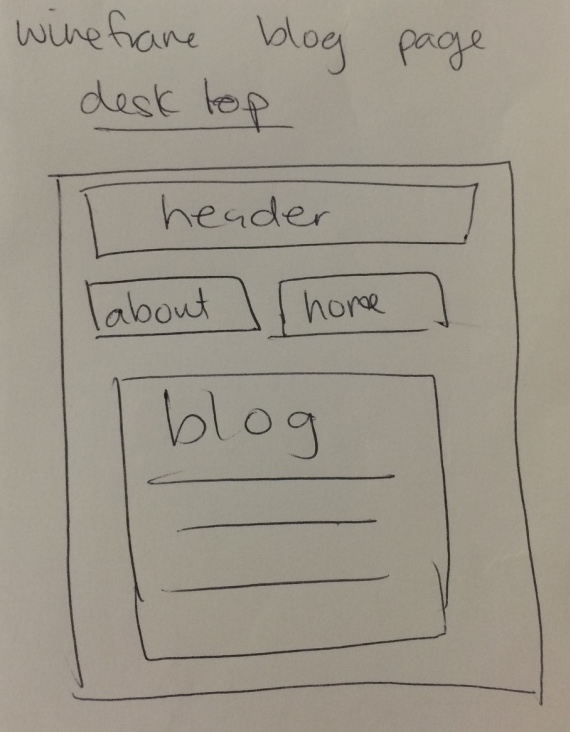 wireframe blog page
desktop
header
about home
blog